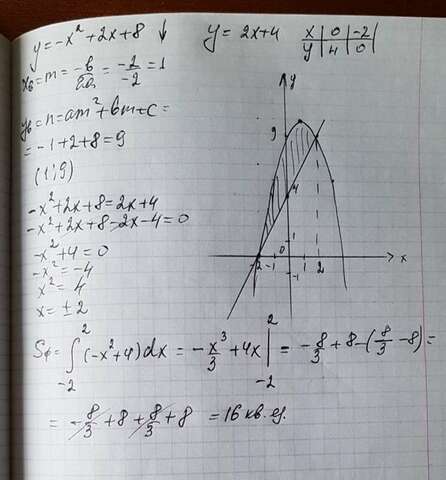 y = -x² + 2x + 8 ↓
y = 2x + 4
x | 0 | -2
y | 4 | 0
x₀ = m = -b/2a = -2/-2 = 1
y₀ = n = am² + bm + c =
= -1 + 2 + 8 = 9
(1; 9)
-x² + 2x + 8 = 2x + 4
-x² + 2x + 8 - 2x - 4 = 0
-x² + 4 = 0
-x² = -4
x² = 4
x = ± 2
y
9
4
1
-2 -1 0 1 2 x
-1
Sф = ∫₋₂² (-x² + 4) dx = -x³/3 + 4x |₋₂² = -8/3 + 8 - (8/3 - 8) =
= -8/3 + 8 + 8/3 + 8 = 16 кв. ед.